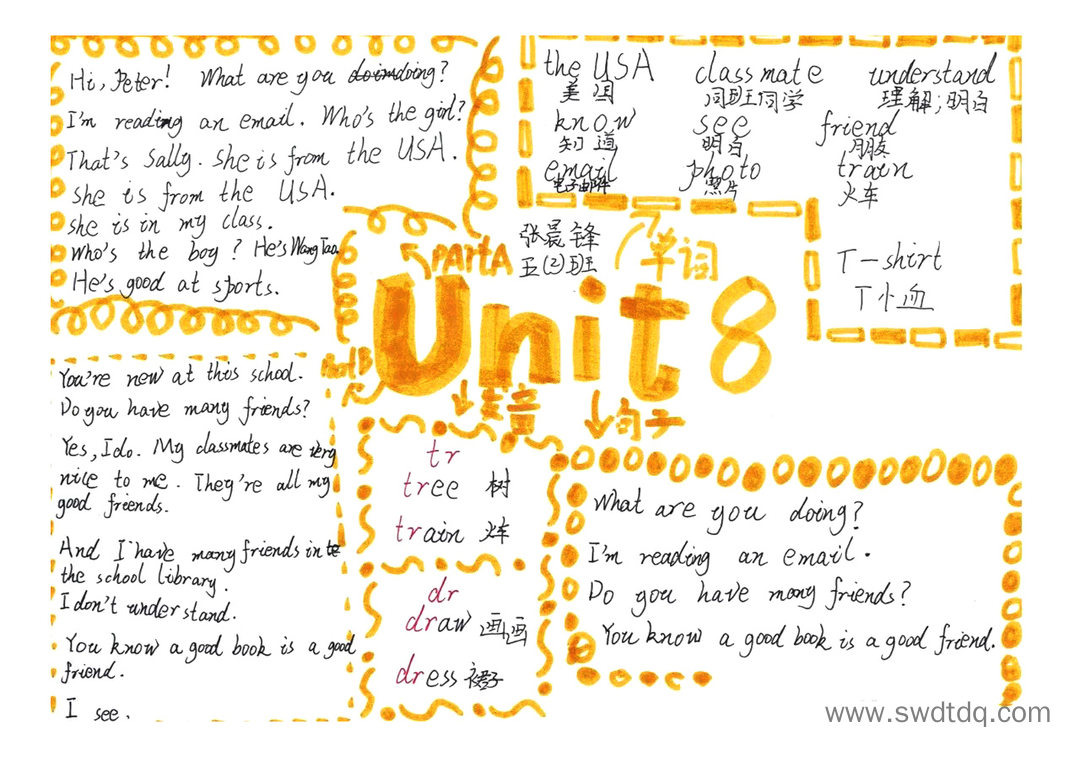 Hi, Peter! What are you doing?
I'm reading an email. Who's the girl?
That's Sally. She is from the USA.
she is from the USA.
she is in my class.
Who's the boy? He's Wang Tao.
He's good at sports.
the USA classmate understand
美国 同班同学 理解;明白
know see friend
知道 明白 朋友
email photo train
电子邮件 照片 火车
T-shirt
T恤
张晨锋
五(2)班
单词
PArtA
Unit 8
PartB
发音
句子
You're new at this school.
Do you have many friends?
Yes, I do. My classmates are very
nice to me. They're all my
good friends.
And I have many friends in
the school library.
I don't understand.
You know a good book is a good
friend.
I see.
tr
tree 树
train 火车
dr
draw 画画
dress 裙子
What are you doing?
I'm reading an email.
Do you have many friends?
You know a good book is a good friend.
www.swdtdq.com